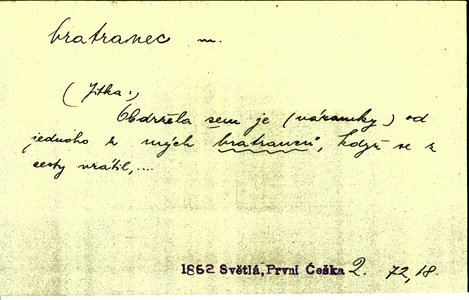 bratranec m.
(Jitka:)
Obdržela sem je (náramky) od
jednoho z mých bratranců, když se z
cesty vrátil,....
1862 Světlá, První Češka 2. 72,18.